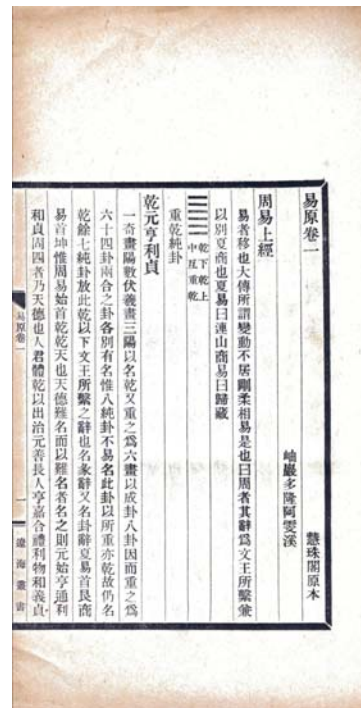 易原卷一
慧珠閣原本
岫巖多隆阿雯溪
周易上經
易者移也大傳所謂變動不居剛柔相易是也曰周者其辭爲文王所繫兼
以別夏商也夏易曰連山商易曰歸藏
乾下乾上
中互重乾
重乾純卦
乾元亨利貞
一奇畫陽數伏羲畫三陽以名乾又重之爲六畫以成卦八卦因而重之爲
六十四卦兩合之卦各別有名惟八純卦不易名此卦以所重亦乾故仍名
乾餘七純卦放此乾以下文王所繫之辭也名彖辭又名卦辭夏易首艮商
易首坤惟周易始首乾乾天也天德難名而以難名者名之則元始亨通利
和貞固四者乃天德也人君體乾以出治元善長人亨嘉合禮利物和義貞
易原卷一
一
遼海叢書